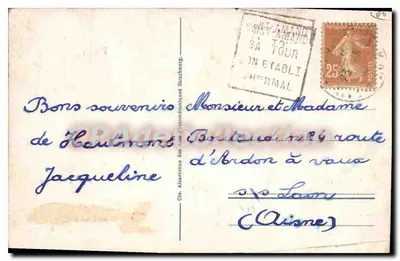 SAINT-AMAND
SA TOUR
SON ETABLT
THERMAL
25c
Bons souvenirs
de Hautmont
Jacqueline
Cie. Alsacienne des Arts Photomécaniques Strasbourg.
Monsieur et Madame
n° 4 route
d'Ardon à vaux
s/s Laon
(Aisne)